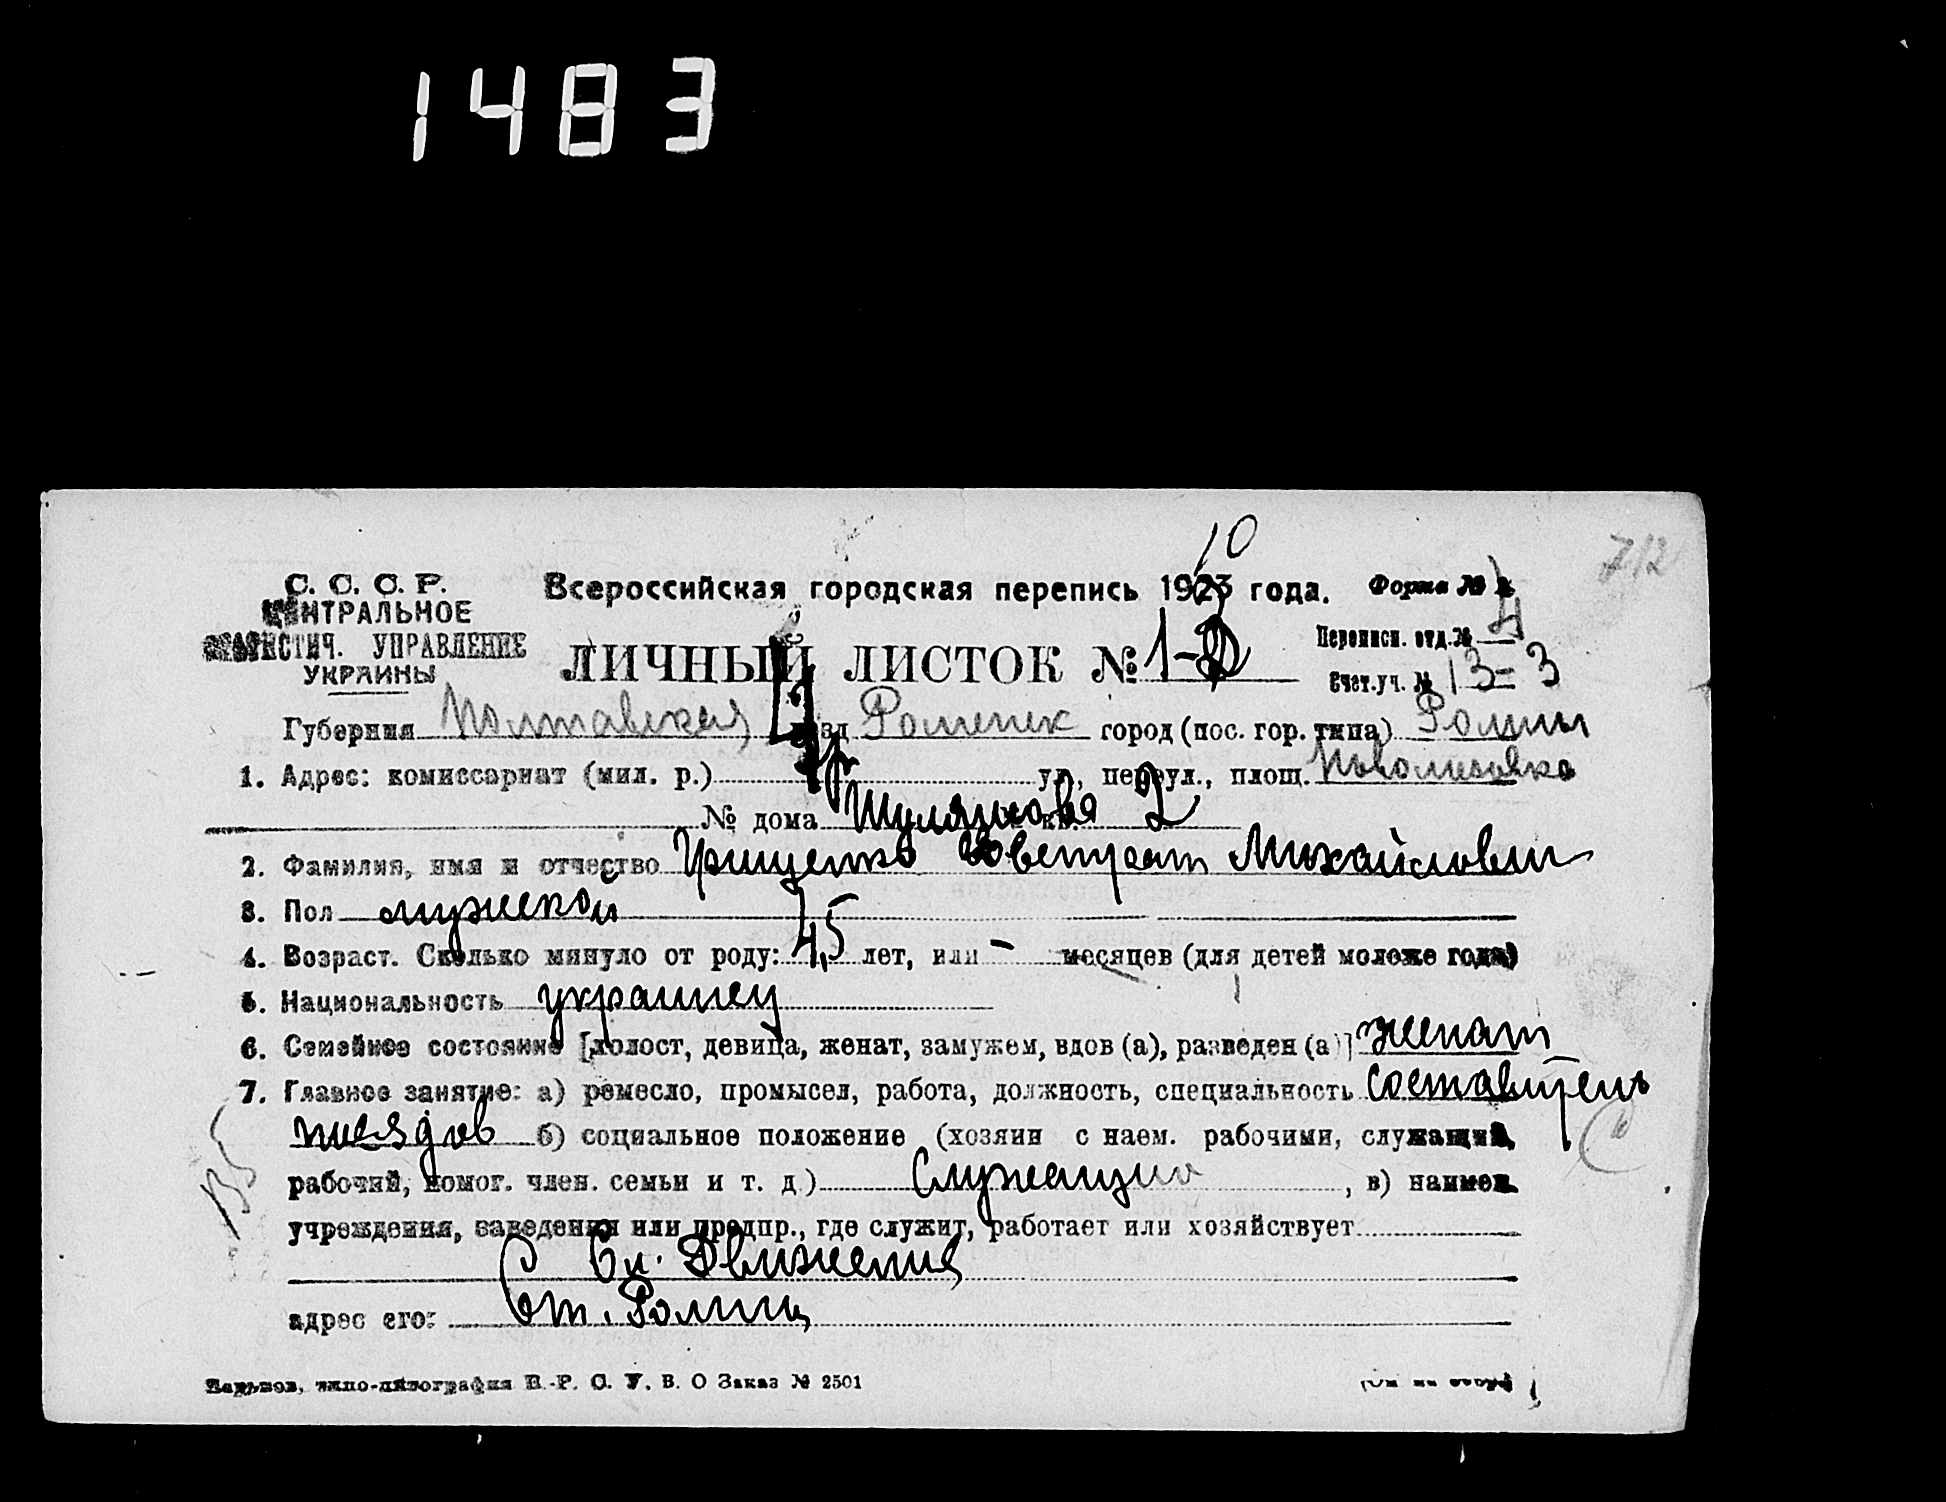 1483
10
712
С. С. С. Р.
ЦЕНТРАЛЬНОЕ
СТАТИСТИЧ. УПРАВЛЕНИЕ
УКРАИНЫ
Всероссийская городская перепись 1923 года. Форма №
ЛИЧНЫЙ ЛИСТОК № 1-
Переписн. отд. № 4
Счет. уч. № 13 = 3
Губерния Полтавская уезд Роменск город (пос. гор. типа) Ромны
1. Адрес: комиссариат (мил. р.) ул., переул., площ.
№ дома кв. 2
2. Фамилия, имя и отчество Грищенко Евстрат Михайлович
3. Пол мужской
4. Возраст. Сколько минуло от роду: 45 лет, или - месяцев (для детей моложе года)
5. Национальность украинец
6. Семейное состояние [холост, девица, женат, замужем, вдов (а), разведен (а)] женат
7. Главное занятие: а) ремесло, промысел, работа, должность, специальность составитель
поездов б) социальное положение (хозяин с наем. рабочими, служащий,
рабочий, помог. член. семьи и т. д.) Служащий, в) наимен.
учреждения, заведения или предпр., где служит, работает или хозяйствует
Сл. Движения
адрес его: Ст. Ромны
Харьков, типо-литография В.-Р. С. У. В. О Заказ № 2501